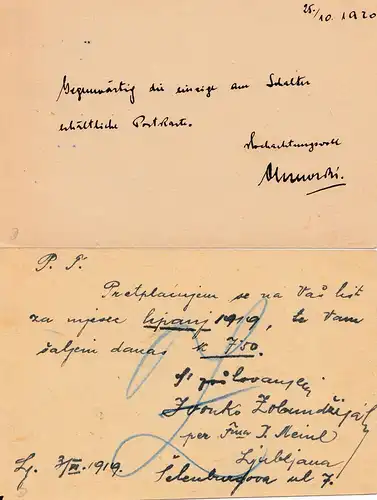 25./10. 1920
Gegenwärtig die einzige am Schalter
erhältliche Postkarte.
Hochachtungsvoll
P. T.
Pretplaćujem se na Vaš list
za mjesec lipanj 1919, te Vam
šaljem danas K 7·50.
Si poštovanjem
Zvonko
per Fma J. Meinl
Ljubljana
Lj. 3/VI. 1919. Šelenburgova ul 7.